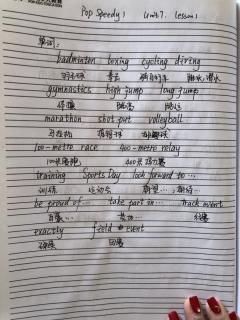 Pop Speedy 1 Unit 7. Lesson 1
单词:
badminton boxing cycling diving
羽毛球 拳击 骑自行车 跳水,潜水
gymnastics high jump long jump
体操 跳高 跳远
marathon shot put volleyball
马拉松 推铅球 排球
100-metre race 400-metre relay
100米赛跑 400米接力赛
training Sports Day look forward to...
训练 运动会 期望...,期待...
be proud of... take part in... track event
自豪... 参加... 径赛
exactly field event
确切 田赛